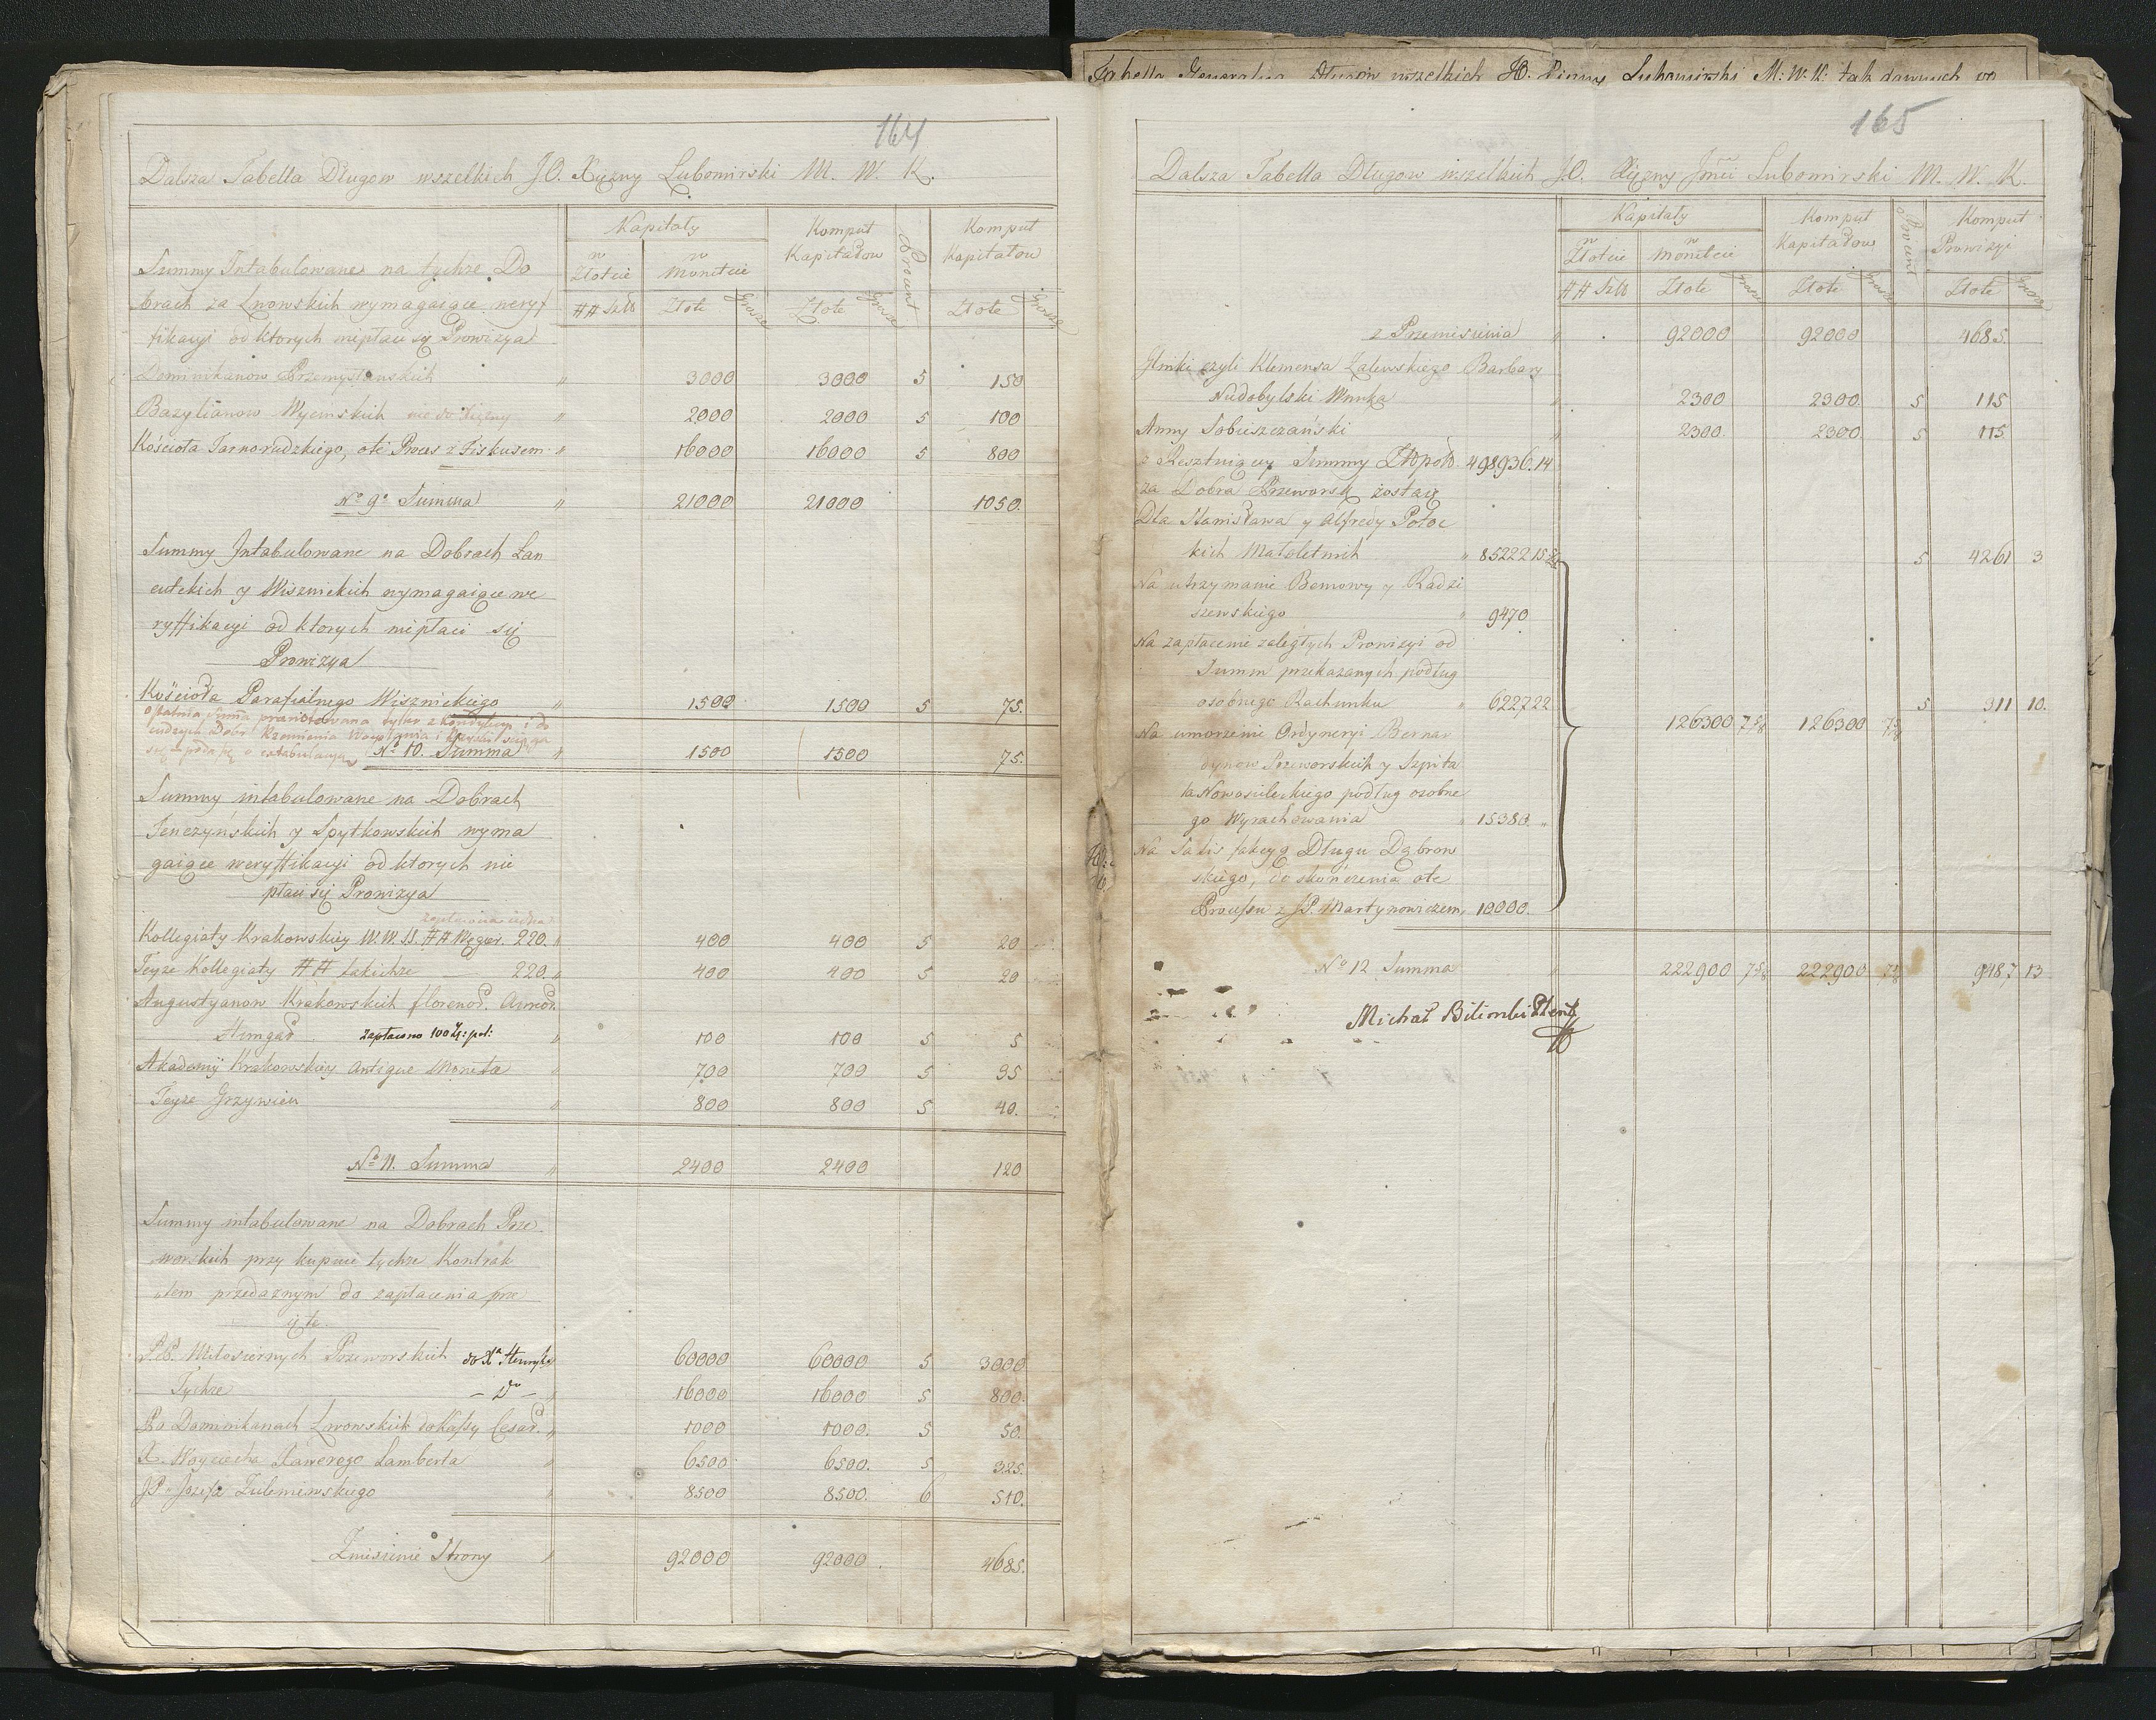 Tabella Generalna Długow wszelkich JO. Xiężny Lubomirski M: W: K: tak dawnych
164
Dalsza Tabella Długow wszelkich JO. Xiężny Lubomirski M. W. K.
Kapitały Komput Kapitałow Procent Komput Kapitałow
w Złocie w Monecie
## Szt: Złote Grosze Złote Grosze Złote Grosze
Summy Intabulowane na tychże Do
brach za Lwowskich wymagaiące weryf
fikacyi od ktorych niepłaci się Prowizya
Dominikanow Przemyslanskich " 3000 3000 5 150
Bazylianow Wycinskich " 2000 2000 5 100
Kościoła Tarnorudzkiego, ote Proces z Fiskusem " 16000 16000 5 800
No 9o Summa " 21000 21000 1050.
Summy Intabulowane na Dobrach Łan
cutskich y Wisznickich wymagaiące we
ryffikacyi od ktorych niepłaci się
Prowizya
Kościoła Parafialnego Wisznickiego " 1500 1500 5 75.
No 10. Summa " 1500 1500 75.
Summy intabulowane na Dobrach
Tenczyńskich y Spytkowskich wyma
gaiące weryffikacyi od ktorych nie
płaci się Prowizya
Kollegiaty Krakowskiey W.W.SS. ## Węgier. 220. " 400 400 5 20
Teyże Kollegiaty ## takichże 220. " 400 400 5 20
Augustyanow Krakowskich florenod.
Hungad. Zapłacono 100 Zł: pol: " 100 100 5 5
Akademij Krakowskiey Antique Moneta " 700 700 5 35
Teyże Grzywien " 800 800 5 40.
No 11. Summa " 2400 2400 120
Summy intabulowane na Dobrach Prze
worskich przy kupnie tychże Kontrak
tem przedaznym do zapłacenia prze
ięte
P.P. Miłosiernych Przeworskich do Xa Henryka 60000 60000 5 3000
Tychże - do - " 16000 16000 5 800.
Po Dominikanach Lwowskich do Kassy Cesar. " 1000 1000. 5 50.
X. Woyciecha Xawerego Lamberta " 6500 6500. 5 325.
JP. Jozefa Zuliniewskiego " 8500 8500. 6 510.
Zniesienie Strony " 92000 92000. 4685.
165
Dalsza Tabella Długow wszelkich JO. Xiężny Jmci Lubomirski M. W. K.
Kapitały Komput Kapitałow Procent Komput Prowizyi
w Złocie w Monecie
## Szt: Złote Grosze Złote Grosze Złote Grosze
z Przeniesienia " 92000 92000 4685.
Glinki czyli Klemensa Zalewskiego Barbary
Nudobylski Wnuka " 2300 2300. 5 115
Anny Sobieszczański " 2300. 2300. 5 115
z Resztuiącey Summy Złopols. 498936.14
za Dobra Przeworsk zostaie
Dla Stanisława y Alfredy Potoc
kich Małoletnich " 85222 15 5 4261 3
Na utrzymanie Bemowy y Radzi
szewskiego " 9470
Na zapłacenie zaległych Prowizyi od
Summ przekazanych podług
osobnego Rachunku " 6227 22 5 311 10.
126300 7 5/8 126300 7 5/8
Na umorzenie Ordynaryi Bernar
dynow Przeworskich y Szpita
la Nowosieleckiego podług osobne
go Wyrachowania " 15380. "
Na Satisfakcyą Długu Dąbrow
skiego, do skończenia ote
Processu z JP. Martynowiczem, 10000.
No 12 Summa " 222900 7 5/8 222900 7 5/8 9487 13
Michał